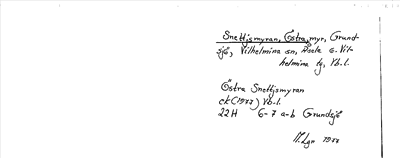 Snettjsmyran, Östra, myr, Grund-
sjö, Vilhelmina sn, Åsele o. Vil-
helmina tg, Vb. l.
Östra Snettjsmyran
ek (1977) Vb. l.
22H 6-7 a-b Grundsjö
1977